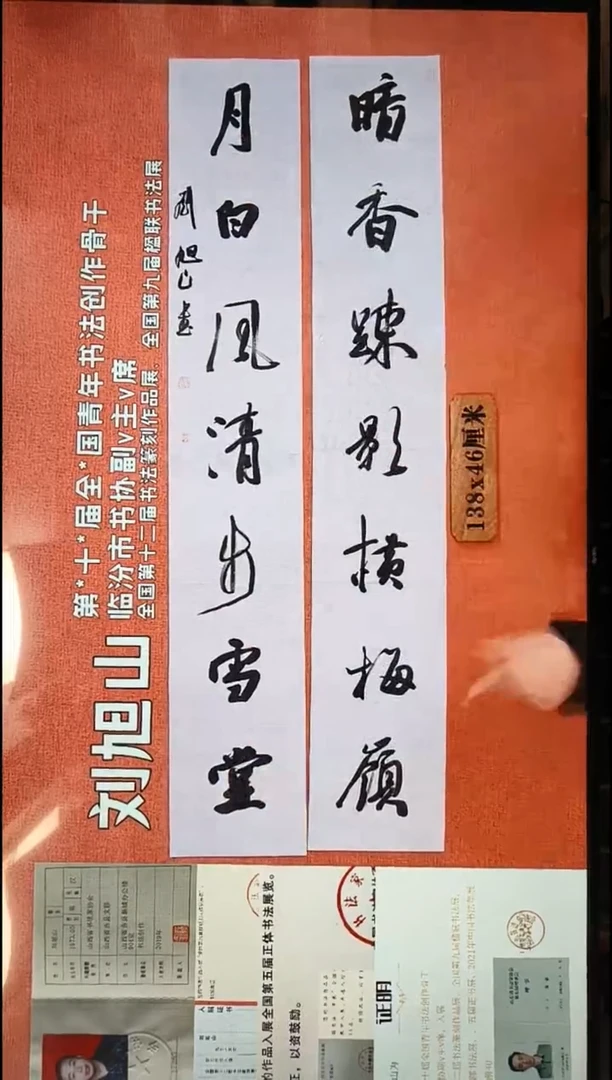 暗香踈影横梅嶺
月白风清步雪堂
刘旭山书
138x46厘米
第*十*届全*国青年书法创作骨干
临汾市书协副v主v席
全国第十二届书法篆刻作品展、全国第九届楹联书法展
刘旭山
的作品入展全国第五届正体书法展览。
证，以资鼓励。
证明